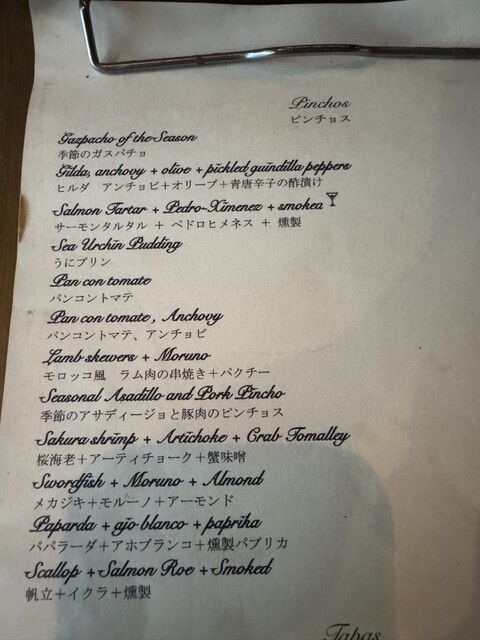 Pinchos
ピンチョス
Gazpacho of the Season
季節のガスパチョ
Gilda, anchovy + olive + pickled guindilla peppers
ヒルダ　アンチョビ＋オリーブ＋青唐辛子の酢漬け
Salmon Tartar + Pedro-Ximenez + smokea
サーモンタルタル ＋ ペドロヒメネス ＋ 燻製
Sea Urchin Pudding
うにプリン
Pan con tomate
パンコントマテ
Pan con tomate, Anchovy
パンコントマテ、アンチョビ
Lamb skewers + Moruno
モロッコ風　ラム肉の串焼き＋パクチー
Seasonal Asadillo and Pork Pincho
季節のアサディージョと豚肉のピンチョス
Sakura shrimp + Artichoke + Crab Tomalley
桜海老＋アーティチョーク＋蟹味噌
Swordfish + Moruno + Almond
メカジキ＋モルーノ＋アーモンド
Paparda + ajo blanco + paprika
パパラーダ＋アホブランコ＋燻製パプリカ
Scallop + Salmon Roe + Smoked
帆立＋イクラ＋燻製
Tapas